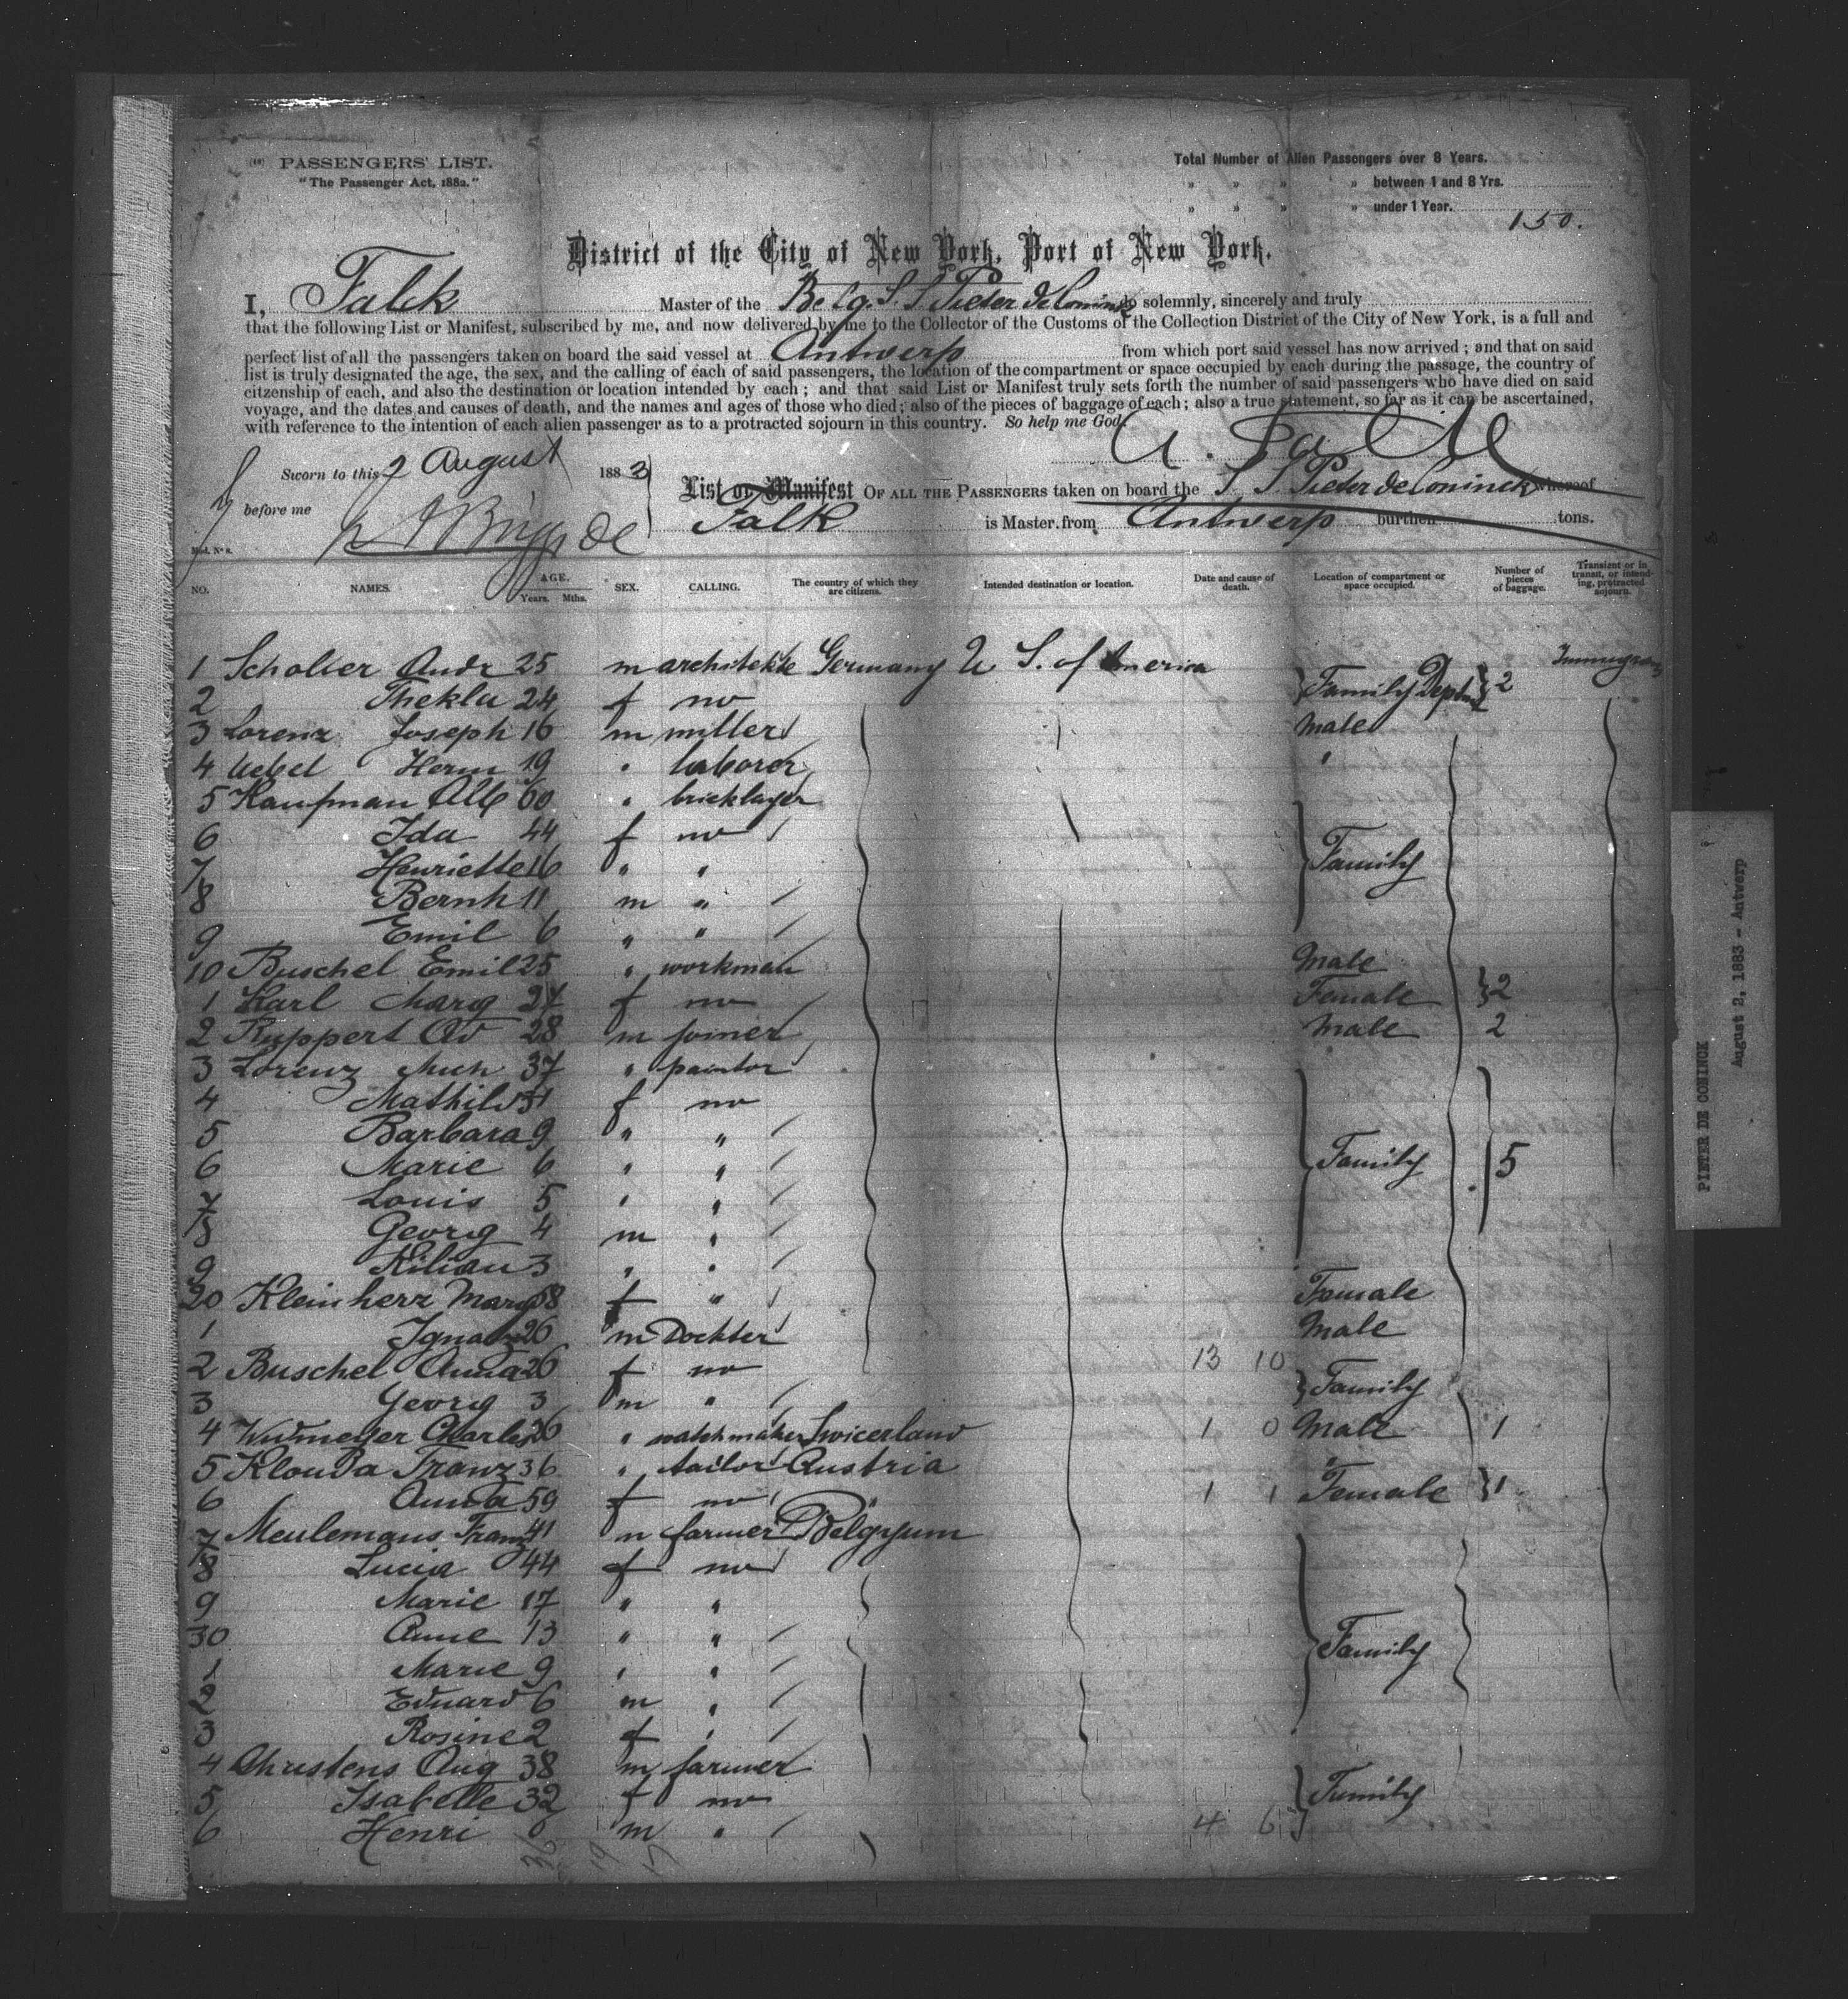 (10) PASSENGERS' LIST.
"The Passenger Act, 1882."
Total Number of Alien Passengers over 8 Years.
" " " " between 1 and 8 Yrs.
" " " " under 1 Year.
150.
District of the City of New York, Port of New York.
I, Falck Master of the Belg. S. S. Pieter de Coninck do solemnly, sincerely and truly
that the following List or Manifest, subscribed by me, and now delivered by me to the Collector of the Customs of the Collection District of the City of New York, is a full and
perfect list of all the passengers taken on board the said vessel at Antwerp from which port said vessel has now arrived; and that on said
list is truly designated the age, the sex, and the calling of each of said passengers, the location of the compartment or space occupied by each during the passage, the country of
citzenship of each, and also the destination or location intended by each; and that said List or Manifest truly sets forth the number of said passengers who have died on said
voyage, and the dates and causes of death, and the names and ages of those who died; also of the pieces of baggage of each; also a true statement, so far as it can be ascertained,
with reference to the intention of each alien passenger as to a protracted sojourn in this country. So help me God.
Sworn to this 2 August 1883
before me
List or Manifest OF ALL THE PASSENGERS taken on board the S. S. Pieter de Coninck whereof
Falk is Master. from Antwerp burthen tons.
Mod. No 8.
NO. NAMES. AGE. Years. Mths. SEX. CALLING. The country of which they are citizens. Intended destination or location. Date and cause of death. Location of compartment or space occupied. Number of pieces of baggage. Transient or in transit, or intending, protracted sojourn.
1 Scholler Andr 25 m architekte Germany U S. of America
2 Thekla 24 f no Family Dept 2
3 Lorenz Joseph 16 m miller Male
4 Uebel Herm 19 " laborer "
5 Kaufman Alb 60 " bricklayer
6 Ida 44 f no
7 Henriette 16 " " Family
8 Bernh 11 m "
9 Emil 6 " "
10 Buschel Emil 25 " workman Male
1 Karl Marg 27 f no Female 2
2 Ruppert Ad 28 m joiner Male 2
3 Lorenz Mich 37 " paintor
4 Mathild 31 f no
5 Barbara 9 " "
6 Marie 6 " " Family 5
7 Louis 5 " "
8 Georg 4 m "
9 Kilian 3 " "
20 Kleinherz Marg 58 f " Female
1 Ignatz 26 m Dockter Male
2 Buschel Anna 26 f no 13 10
3 Georg 3 m " Family
4 Charles 26 " watchmaker Swicerland 1 0 Male 1
5 Klouda Franz 36 " tailor Austria "
6 Anna 59 f no " 1 1 Female 1
7 Meulemans Franz 41 m farmer Belgyum
8 Lucia 44 f no
9 Marie 17 " "
30 Anne 13 " " Family
1 Marie 9 " "
2 Eduard 6 m "
3 Rosine 2 f "
4 Christens Aug 38 m farmer
5 Isabelle 32 f no Family
6 Henri m " 4 6
PIETER DE CONINCK
August 2, 1883 - Antwerp